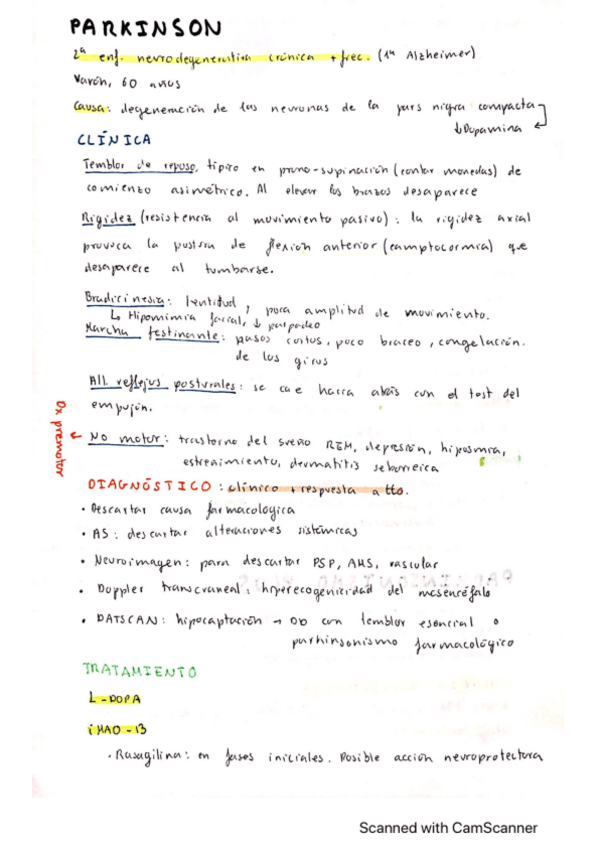 PARKINSON
2ª enf. neurodegenerativa crónica + frec. (1ª Alzheimer)
Varón, 60 años
Causa: degeneración de las neuronas de la pars nigra compacta
↓Dopamina
CLÍNICA
Temblor de reposo, típico en prono-supinación (contar monedas) de
comienzo asimétrico. Al elevar los brazos desaparece
Rigidez (resistencia al movimiento pasivo): la rigidez axial
provoca la postura de flexión anterior (camptocormia) que
desaparece al tumbarse.
Bradicinesia: lentitud y poca amplitud de movimiento.
↳ Hipomimia facial, ↓ parpadeo
Marcha festinante: pasos cortos, poco braceo, congelación.
de los giros
Alt. reflejos posturales: se cae hacia atrás con el test del
empujón.
Dx premotor
No motor: trastorno del sueño REM, depresión, hiposmia,
estreñimiento, dermatitis seborreica
DIAGNÓSTICO: clínico + respuesta a tto.
• Descartar causa farmacológica
• AS: descartar alteraciones sistémicas
• Neuroimagen: para descartar PSP, AMS, vascular
• Doppler transcraneal: hiperecogenicidad del mesencéfalo
• DATSCAN: hipocaptación → DD con temblor esencial o
parkinsonismo farmacológico
TRATAMIENTO
L-DOPA
iMAO-B
• Rasagilina: en fases iniciales. Posible acción neuroprotectora
Scanned with CamScanner